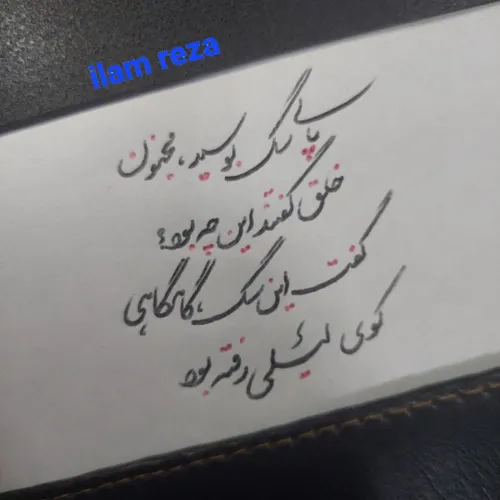 ilam reza
پای سگ بوسید، مجنون
خلق گفتند این چه بود؟
گفت این سگ، گاهگاهی
کوی لیلی رفته بود